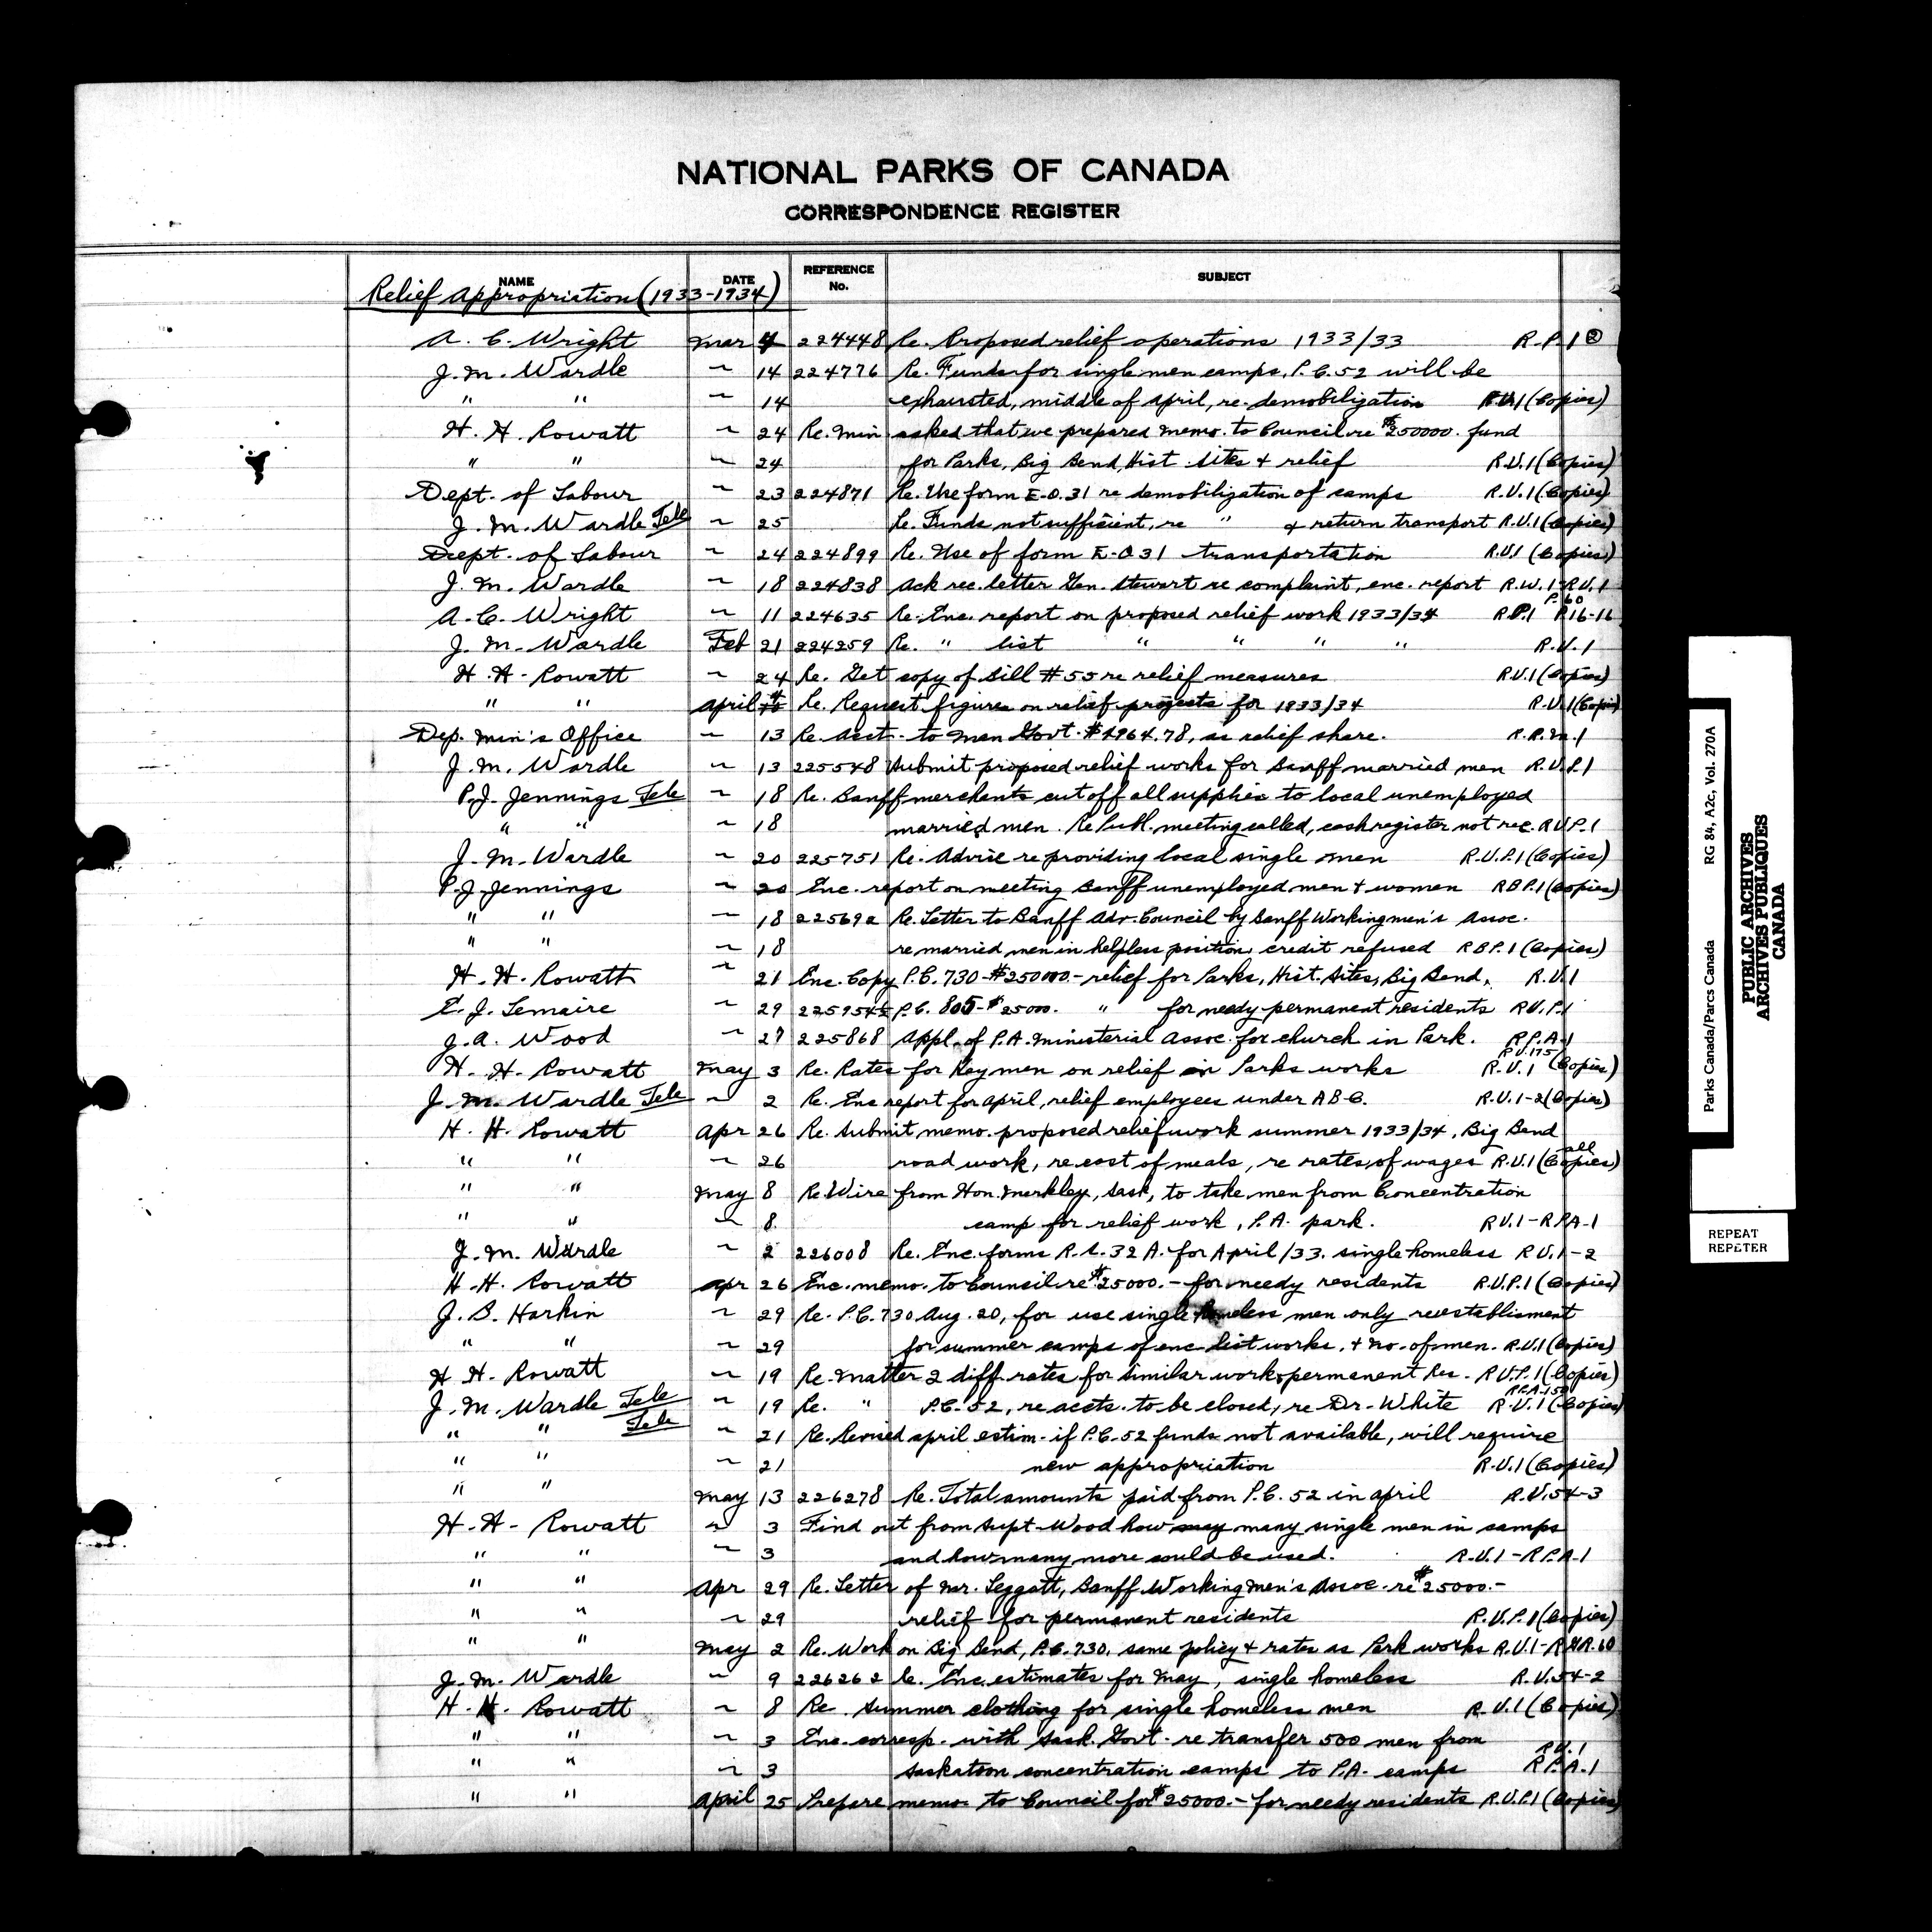 NATIONAL PARKS OF CANADA
CORRESPONDENCE REGISTER
NAME DATE REFERENCE No. SUBJECT
Relief Appropriation (1933-1934)
A. C. Wright Mar 4 224448 Re. Proposed relief operations 1933/33 R.P.1 ②
J. M. Wardle ~ 14 224776 Re. Funds for single men camps, P.C. 52 will be
" " ~ 14 exhausted, middle of April, re demobilization R.U.1 (Copies)
H. H. Rowatt ~ 24 Re. Min asked that we prepared memo. to Council re $250000. fund
" " ~ 24 for Parks, Big Bend, Hist. Sites & relief R.U.1 (Copies)
Dept. of Labour ~ 23 224871 Re. Use form E.O.31 re demobilization of camps R.U.1 (Copies)
J. M. Wardle Tele ~ 25 Re. Funds not sufficient, re " & return transport R.U.1 (Copies)
Dept. of Labour ~ 24 224899 Re. Use of form E-O 31 transportation R.U.1 (Copies)
J. M. Wardle ~ 18 224838 Ack rec. letter Gen. Stewart re complaint, enc. report R.W.1-R.U.1
A. C. Wright ~ 11 224635 Re. Enc. report on proposed relief work 1933/34 R.P.1 P.60 P.16-16
J. M. Wardle Feb 21 224259 Re. " list " " " " R.U.1
H. H. Rowatt ~ 24 Re. Get copy of Bill #55 re relief measures R.U.1 (Copies)
" " April Re. Request figures on relief projects for 1933/34 R.U.1 (Copies)
Dep. Min's Office ~ 13 Re. Acct. to Man Govt. $1964.78, as relief share. R.R.M.1
J. M. Wardle ~ 13 225548 Submit proposed relief works for Banff married men R.U.P.1
P. J. Jennings Tele ~ 18 Re. Banff merchants cut off all supplies to local unemployed
" " ~ 18 married men. Re Publ. meeting called, cash register not rec. R.U.P.1
J. M. Wardle ~ 20 225751 Re. Advise re providing local single men R.U.P.1 (Copies)
P. J. Jennings ~ 20 Enc. report on meeting Banff unemployed men & women R.B.P.1 (Copies)
" " ~ 18 225692 Re. Letter to Banff Adv. Council by Banff Workingmen's Assoc.
" " ~ 18 re married men in helpless position, credit refused R.B.P.1 (Copies)
H. H. Rowatt ~ 21 Enc. Copy P.C. 730-$250000.- relief for Parks, Hist. Sites, Big Bend, R.U.1
E. J. Lemaire ~ 29 225954½ P.C. 805-$25000. " for needy permanent residents R.U.P.1
J. A. Wood ~ 27 225868 Appl. of P.A. Ministerial Assoc. for church in Park. R.P.A.1
H. H. Rowatt May 3 Re. Rates for Key men on relief in Parks works R.U.175 R.U.1 (Copies)
J. M. Wardle Tele ~ 2 Re. Enc report for April, relief employees under A B C. R.U.1-2 (Copies)
H. H. Rowatt Apr 26 Re. Submit memo. proposed relief work summer 1933/34, Big Bend
" " ~ 26 road work, re cost of meals, re rates of wages R.U.1 (all Copies)
" " May 8 Re Wire from Hon. Merkley, Sask, to take men from Concentration
" " ~ 8 camp for relief work, P.A. park. R.U.1-R.P.A-1
J. M. Wardle ~ 2 226008 Re. Enc. forms R.S. 32 A. for April/33. single homeless R.U.1-2
H. H. Rowatt Apr 26 Enc. memo. to Council re $25000.- for needy residents R.U.P.1 (Copies)
J. B. Harkin ~ 29 Re. P.C. 730 Aug. 20, for use single homeless men only reestablisment
" " ~ 29 for summer camps of enc list works, & no. of men. R.U.1 (Copies)
H. H. Rowatt ~ 19 Re. Matter 2 diff. rates for similar work & permanent Res. R.U.P.1 (Copies)
J. M. Wardle Tele ~ 19 Re. " P.C. 52, re accts. to be closed, re Dr. White R.P.A.150 R.U.1 (Copies)
" " Tele ~ 21 Re. Revised April estim. if P.C. 52 funds not available, will require
" " ~ 21 new appropriation R.U.1 (Copies)
" " May 13 226278 Re. Total amounts paid from P.C. 52 in April R.U.54-3
H. H. Rowatt ~ 3 Find out from Supt. Wood how may many single men in camps
" " ~ 3 and how many more could be used. R.U.1-R.P.A-1
" " Apr 29 Re. Letter of Mr. Leggatt, Banff Workingmen's Assoc. re $25000.-
" " ~ 29 relief for permanent residents R.U.P.1 (Copies)
" " May 2 Re. Work on Big Bend, P.C. 730, same policy & rates as Park works R.U.1-
J. M. Wardle ~ 9 226262 Re. Enc. estimates for May, single homeless R.U.54-2
H. H. Rowatt ~ 8 Re. Summer clothing for single homeless men R.U.1 (Copies)
" " ~ 3 Enc. corresp. with Sask. Govt. re transfer 500 men from
" " ~ 3 Saskatoon concentration camps to P.A. camps R.U.1 R.P.A.1
" " April 25 Prepare memo. to Council for $25000.- for needy residents R.U.P.1 (Copies)
Parks Canada/Parcs Canada RG 84, A2c, Vol. 270A
PUBLIC ARCHIVES
ARCHIVES PUBLIQUES
CANADA
REPEAT
REPETER